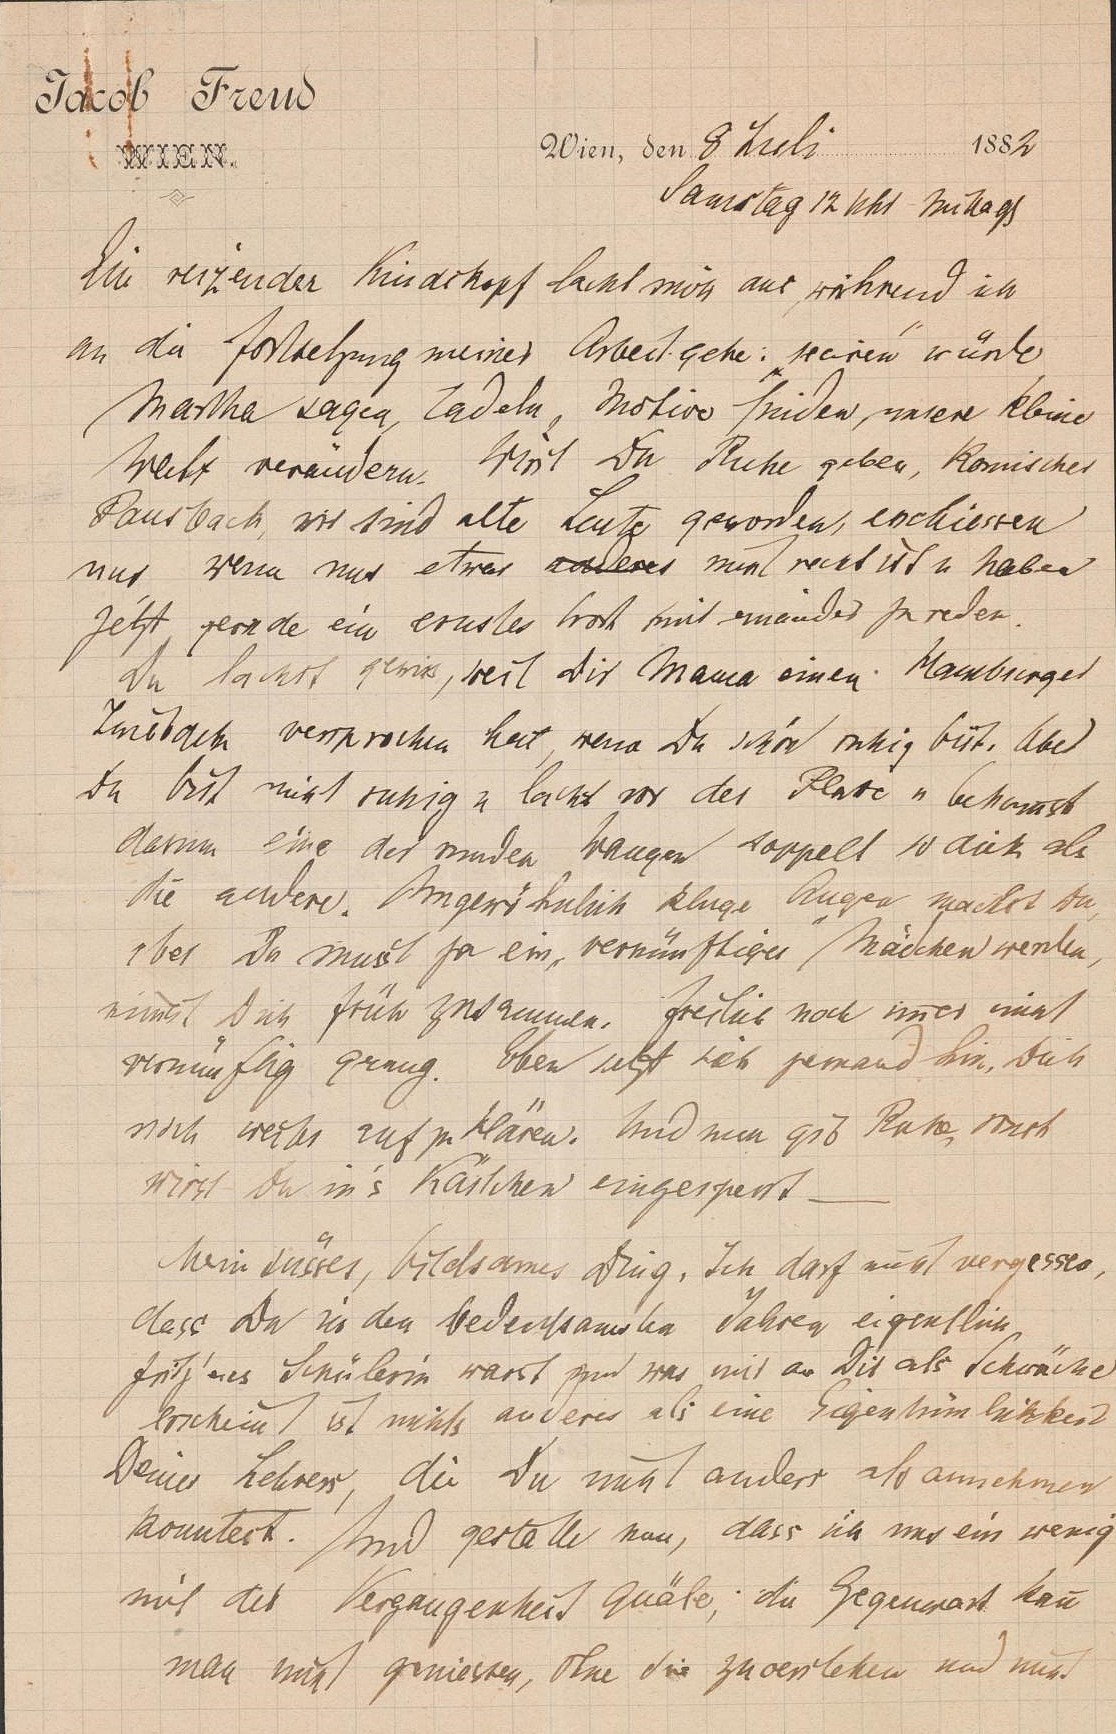 Jacob Freud
WIEN.
Wien, den 8 Juli 1882
Samstag 12 Uhr Mittags
Ein reizender Kindskopf lacht mich aus, während ich
an die Fortsetzung meiner Arbeit gehe. würde
Martha sagen, tadeln, Motive finden, unsere kleine
Welt verändern. Wirst Du Ruhe geben, komischer
Pausback, wir sind alte Leute geworden, erschiessen
uns wenn uns etwas anderes nicht recht ist u haben
jetzt gerade ein ernstes Wort mit einander zu reden.
Du lachst gewiss, weil Dir Mama einen Hamburger
Zwieback versprochen hat, wenn Du schön ruhig bist. Aber
Du bist nicht ruhig u lachst vor der Platte u bekommst
darum eine der runden Wangen doppelt so dick als
die andere. Ungewöhnlich kluge Augen machst Du,
aber Du musst ja ein „vernünftiges" Mädchen werden,
nimmst Dich früh zusammen. Freilich noch immer nicht
vernünftig genug. Eben setzt sich jemand hin, Dich
noch weiter aufzuklären. Und nun gib Ruhe, sonst
wirst Du in's Kästchen eingesperrt —
Mein süsses, bildsames Ding. Ich darf nicht vergessen,
dass Du in den bedeutsamsten Jahren eigentlich
Fritz'ens Schülerin warst und was mir an Dir als Schwäche
erscheint ist nichts anderes als eine Eigenthümlichkeit
Deines Lehrers, die Du nicht anders als annehmen
konntest. Und gestatte nun, dass ich uns ein wenig
mit der Vergangenheit quäle; die Gegenwart kann
man nicht geniessen, ohne sie zu verstehen und nicht